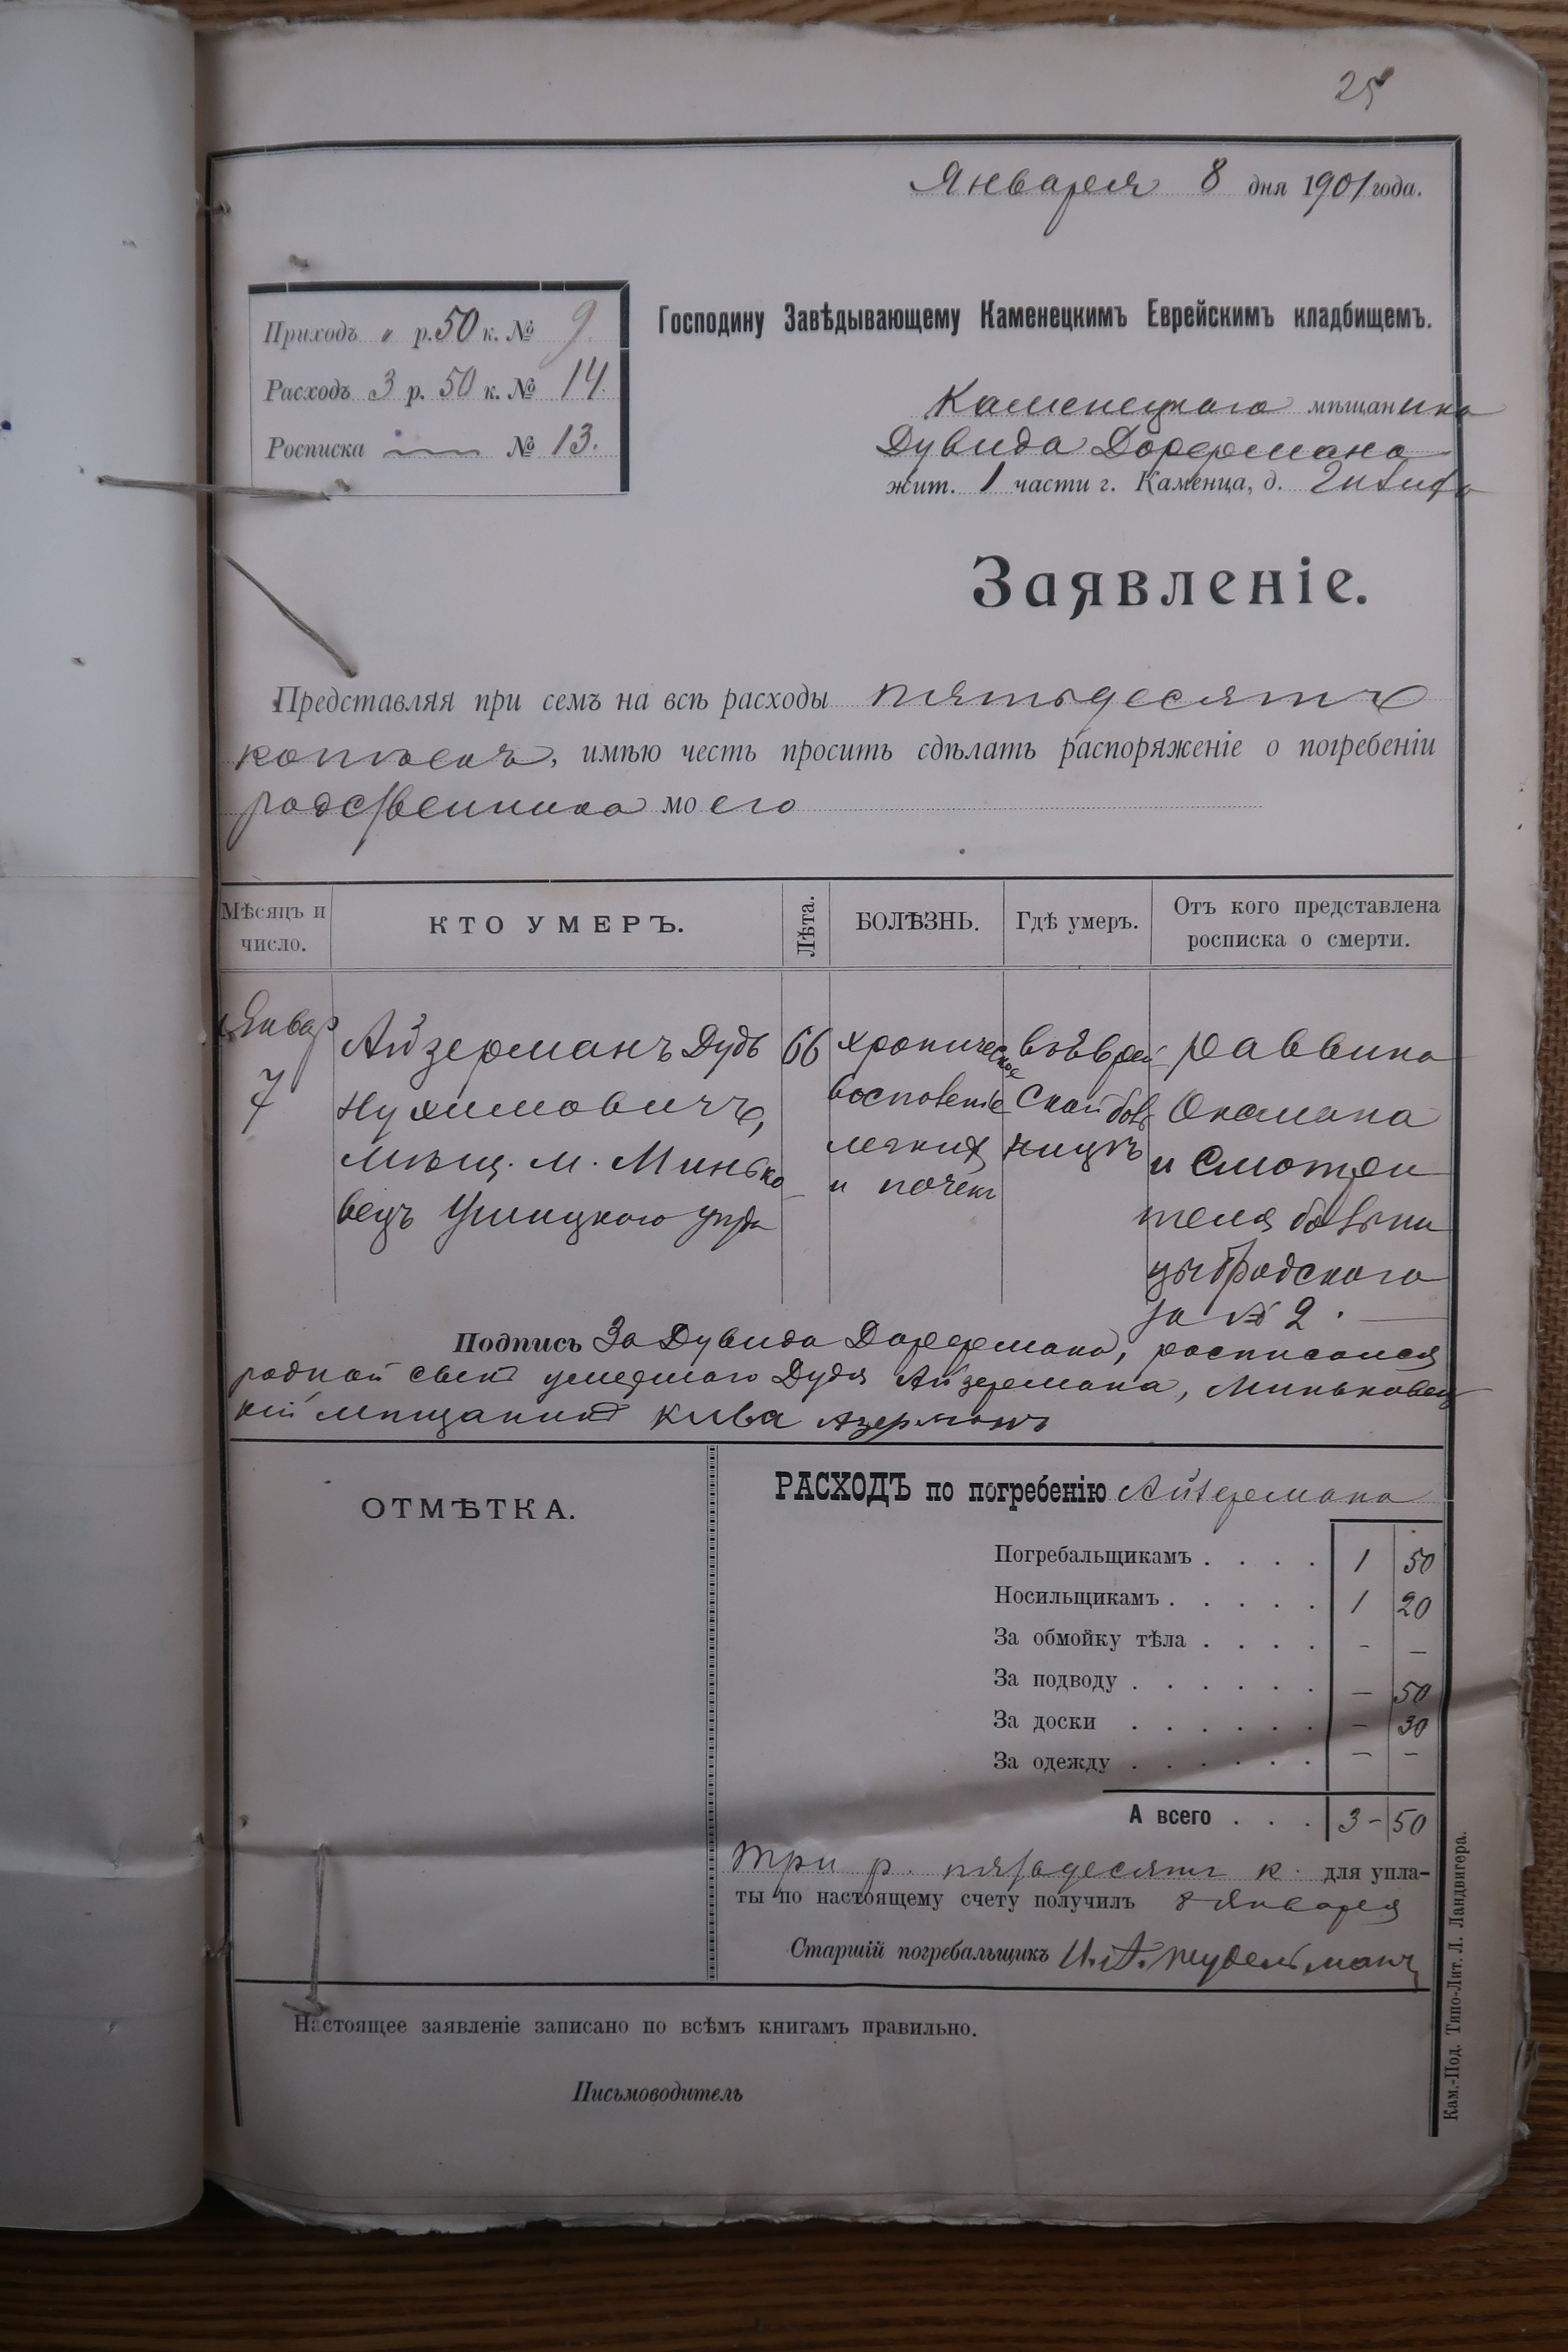 25
Января 8 дня 1901 года.
Приходъ „ р. 50 к. № 9.
Расходъ 3 р. 50 к. № 14.
Росписка № 13.
Господину Завѣдывающему Каменецкимъ Еврейскимъ кладбищемъ.
Каменецкаго мѣщанина
Дувида Дорфмана
жит. 1 части г. Каменца, д.
Заявленіе.
Представляя при семъ на всѣ расходы пятьдесятъ
копѣекъ, имѣю честь просить сдѣлать распоряженіе о погребеніи
родственника моего
Мѣсяцъ и число.
КТО УМЕРЪ.
Лѣта.
БОЛѢЗНЬ.
Гдѣ умеръ.
Отъ кого представлена росписка о смерти.
Январ 7
Айзерманъ Дудь
Нухимовичъ,
мѣщ. м. Минько
вецъ Ушицкого уѣзда
66
хроническое
воспаленіе
легких
и почекъ
въ Еврей
ской боль
ницѣ
Раввина
Оксмана
и Смотри
теля больни
цы Бродского
за № 2.
Подпись За Дувида Дорфмана, росписался
родной сынъ умершаго Дудя Айзермана, Миньковец
кій мѣщанинъ Кива Азерманъ
ОТМѢТКА.
РАСХОДЪ по погребенію Айзермана
Погребальщикамъ . . . . 1 50
Носильщикамъ . . . . . 1 20
За обмойку тѣла . . . . - —
За подводу . . . . . . — 50
За доски . . . . . . — 30
За одежду . . . . . . — —
А всего . . . 3 - 50
Три р. пятьдесятъ к. для упла-
ты по настоящему счету получилъ 8 Января
Старшій погребальщикъ
Настоящее заявленіе записано по всѣмъ книгамъ правильно.
Письмоводитель
Кам.-Под. Типо-Лит. Л. Ландвигера.